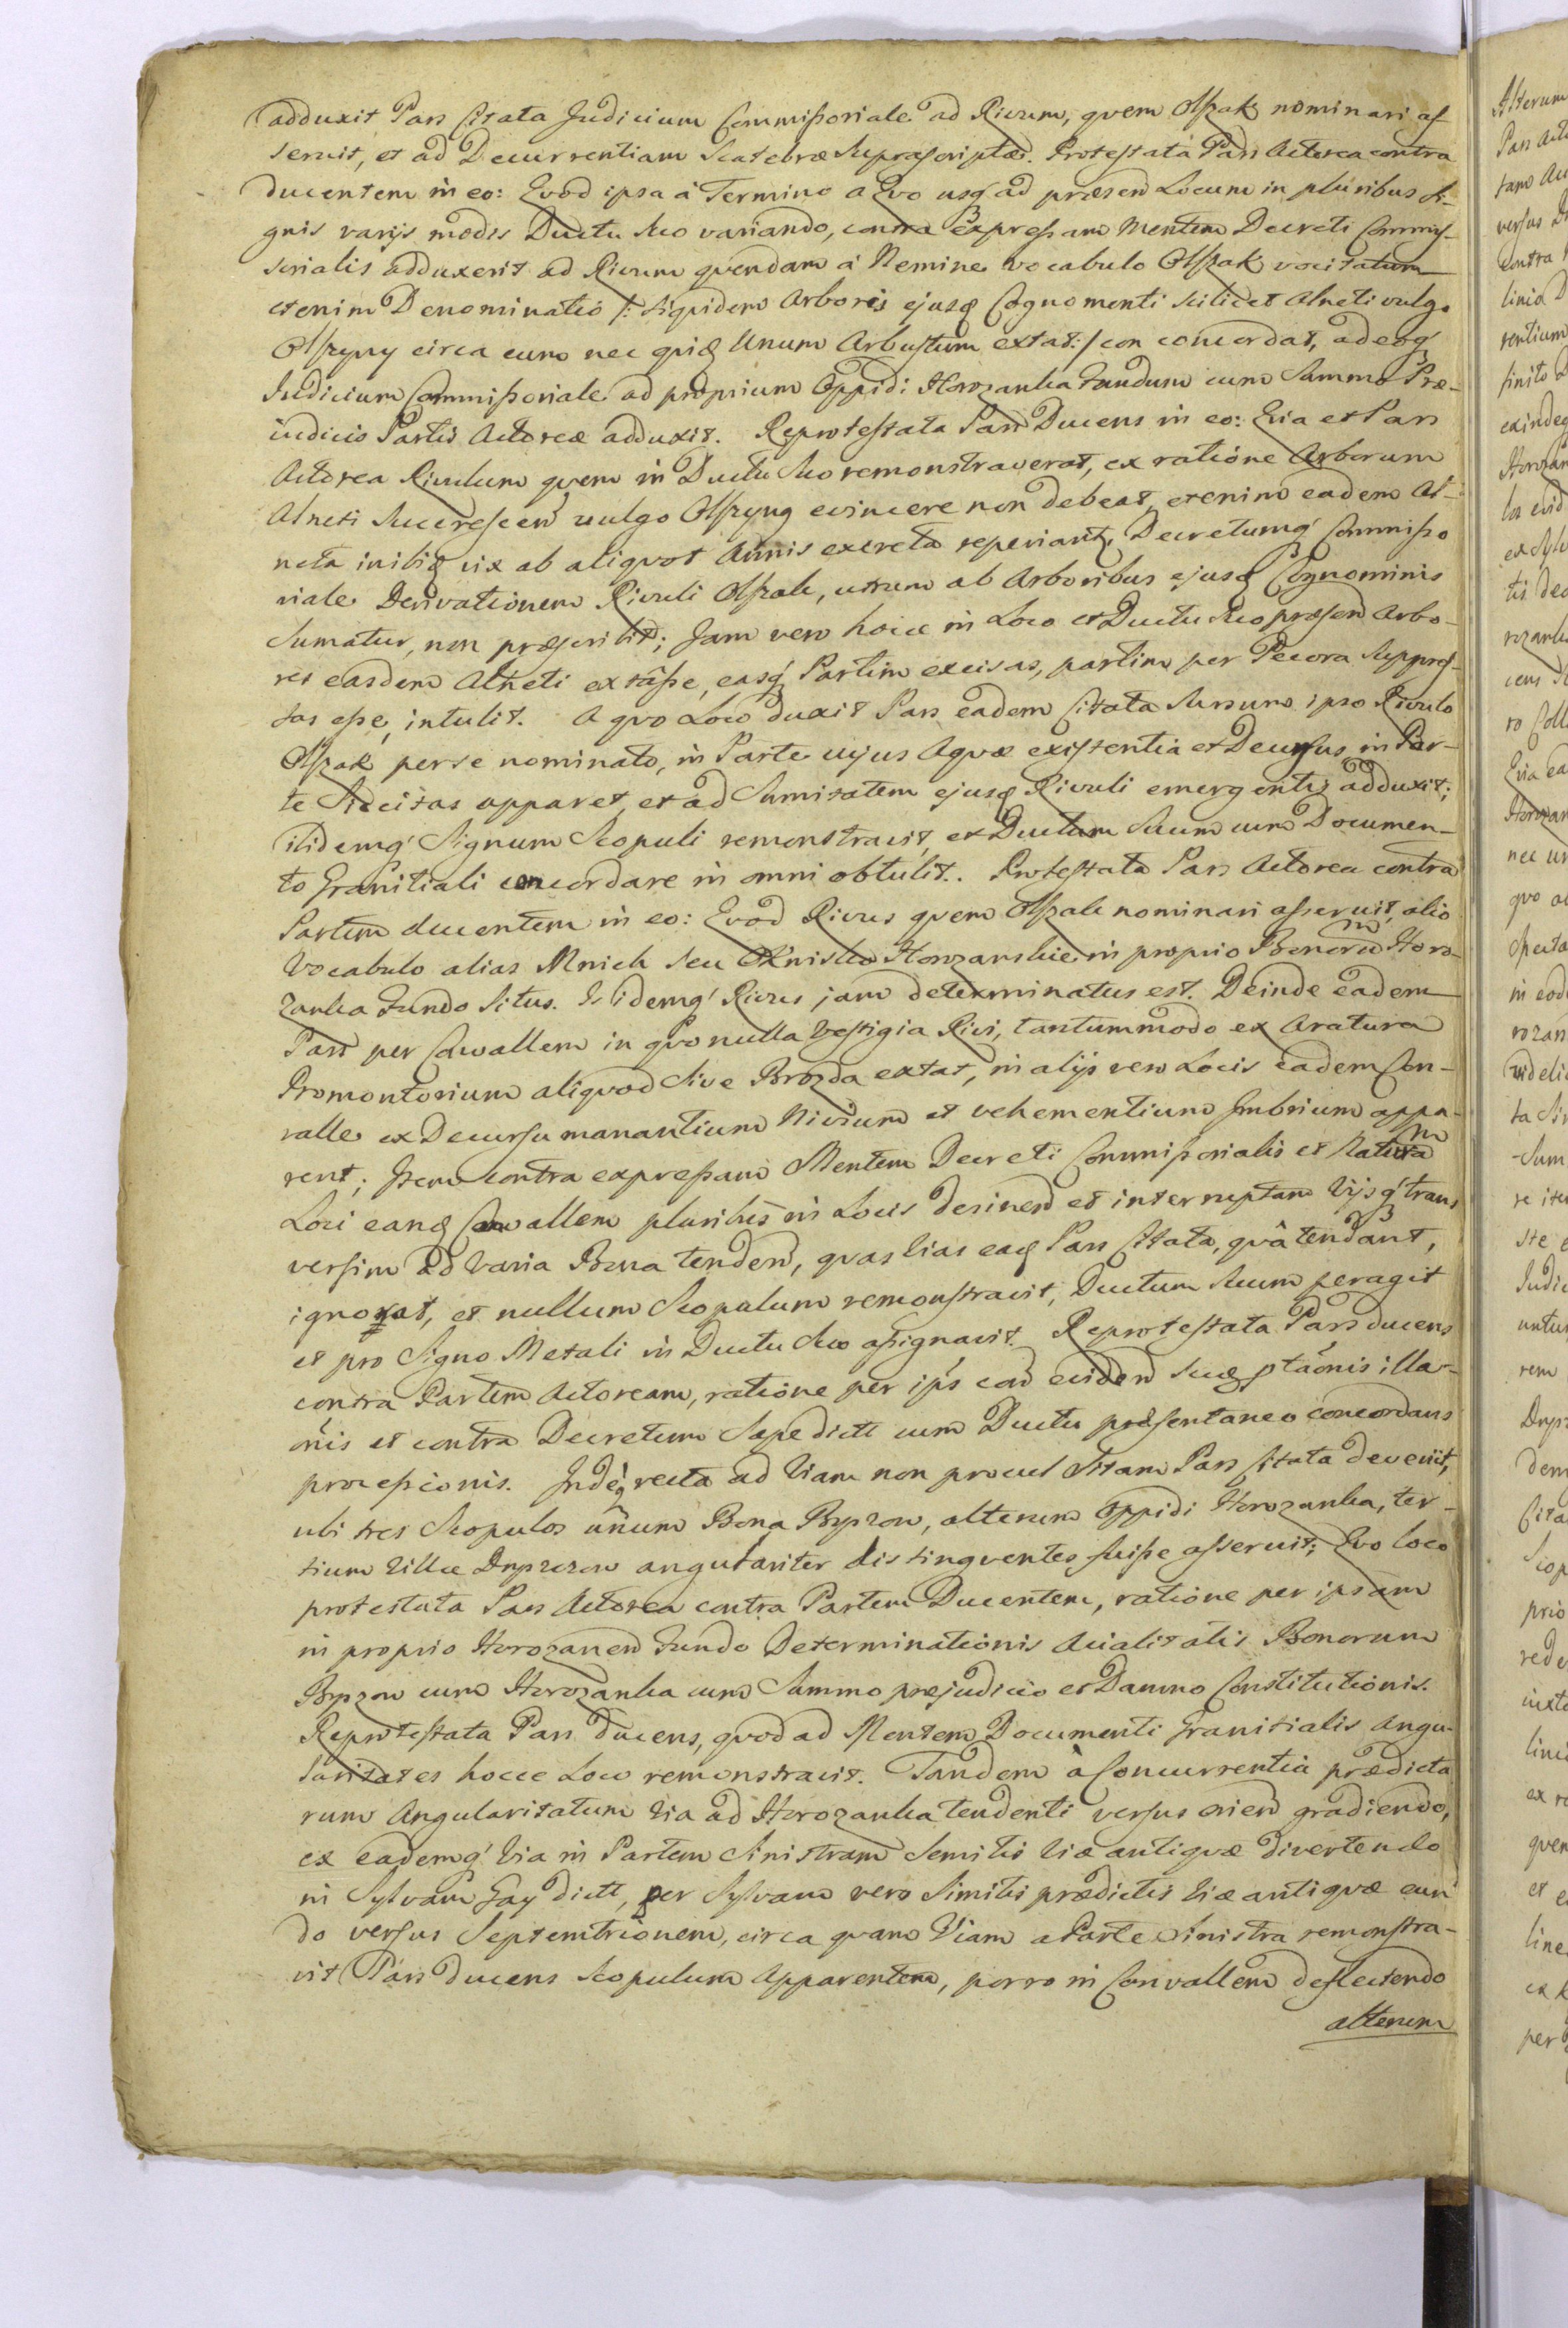 adduxit Pars Citata Judicium Commissoriale ad Rivum, qvem Olszak nominari as-
seruit, et ad Decurrentiam Scatebræ Suprascriptæ. Protestata Pars Actorea contra
ducentem in eo: Qvod ipsa à Termino a Qvo usq' ad præsens Locum in pluribus Si-
gnis varijs modis Ductu suo variando, contra Expressam Mentem Decreti Commis-
serialis adduxerit ad Rivum qvendam à Nemine vocabulo Olszak vocitatum
etenim Denominatio /: siqvidem Arboris ejusq Cognomenti scilicet Alneti vulgo
Olszyny circa eum nec qviq Unum Arbustum extat :/ con concordat, adeoq'
Judicium Commissoriale ad proprium Oppidi Horozanka Fundum cum Summo Præ-
iudicio Partis Actoreæ adduxit. Reprotestata Pars Ducens in eo: Qvia et Pars
Actorea Rivulum qvem in Ductu suo remonstraverat, ex ratione Arborum
Alneti succrescen vulgo Olszyny evincere non debeat, etenim eadem Al-
neta inibiq vix ab aliqvot Annis excreta reperiant, Decretumq' Commisso
riale Derivationem Rivuli Olszak, utrum ab Arboribus ejusq Cognominis
Sumatur, non præscribit; Jam vero hocce in Loco et Ductu suo præsen Arbo-
res easdem Alneti extâsse, easq' Partim excisas, partim per Pecora Suppres-
sas esse, intulit. A qvo Loco duxit Pars eadem Citata Sursum ipso Rivulo
Olszak per se nominato, in Parte cujus Aqvæ existentia et Decursus, in Par-
te Siccitas apparet, et ad Sumitatem ejusq Rivuli emergentis adduxit;
ibidemq' Signum Scopuli remonstravit, et Ductum Suum cum Documen-
to Granitiali concordare in omni obtulit. Protestata Pars Actorea contra
Partem ducentem in eo: Qvod Rivus qvem Olszak nominari asseruit, alio
Vocabulo alias Mnich seu Oknisko Horozanskie in proprio Bonorum Horo-
zanka Fundo Situs. Ibidemq' Rivus jam determinatus est. Deinde eadem
Pars per Convallem in qvo nulla Vestigia Rivi, tantummodo ex Aratura
Promontorium aliqvod Sive Brozda extat, in alijs vero Locis eadem Con-
valle ex Decursu manantium Nivium et vehementium Imbrium appa-
rent; Item contra expressam Mentem Decreti Commissorialis et Naturam
Loci eanq Convallem pluribus in Locis desinen et interruptam Vijsq' trans
versim ad Varia Bona tenden, qvas Vias eaq Pars Citata, qvâ tendant,
ignorat, et nullum Scopulum remonstravit, Ductum Suum peragit
et pro Signo Metali in Ductu Suo assignavit. Reprotestata Pars ducens
contra Partem Actoream, ratione per ips con eiden suæq ptaonis illa-
onis et contra Decretum Sæpe dictt cum Ductu præsentaneo concordans
processionis. Indeq recta ad Viam non procul Sitam Pars Citata devenit,
ubi tres Scopulos unum Bona Bypzow, alterum Oppidi Horozanka, ter-
tium Villæ Dryszczow angulariter distingventes fuisse asseruit; Qvo loco
protestata Pars Actorea contra Partem Ducentem, ratione per ipsam
in proprio Horozanen Fundo Determinationis Acialitatis Bonorum
Bypzow cum Horozanka cum Summo præjudicio et Damno Constitutionis.
Reprotestata Pars ducens, qvod ad Mentem Documenti Granitialis Angu-
laritates hocce Loco remonstravit. Tandem à Concurrentia prædicta
rum Angularitatum Via ad Horozanka tendenti versus orien gradiendo,
ex eademq' Via in Partem Sinistram Semitis Viæ antiqvæ divertendo
in Sylvam Gay dictt, per Sylvam vero Similis prædictis Viæ antiqvæ eun
do versus Septemtrionem, circa qvam Viam a Parte Sinistra remonstra-
vit Pars ducens Scopulum Apparentem, porro in Convallem deflectendo
alterum